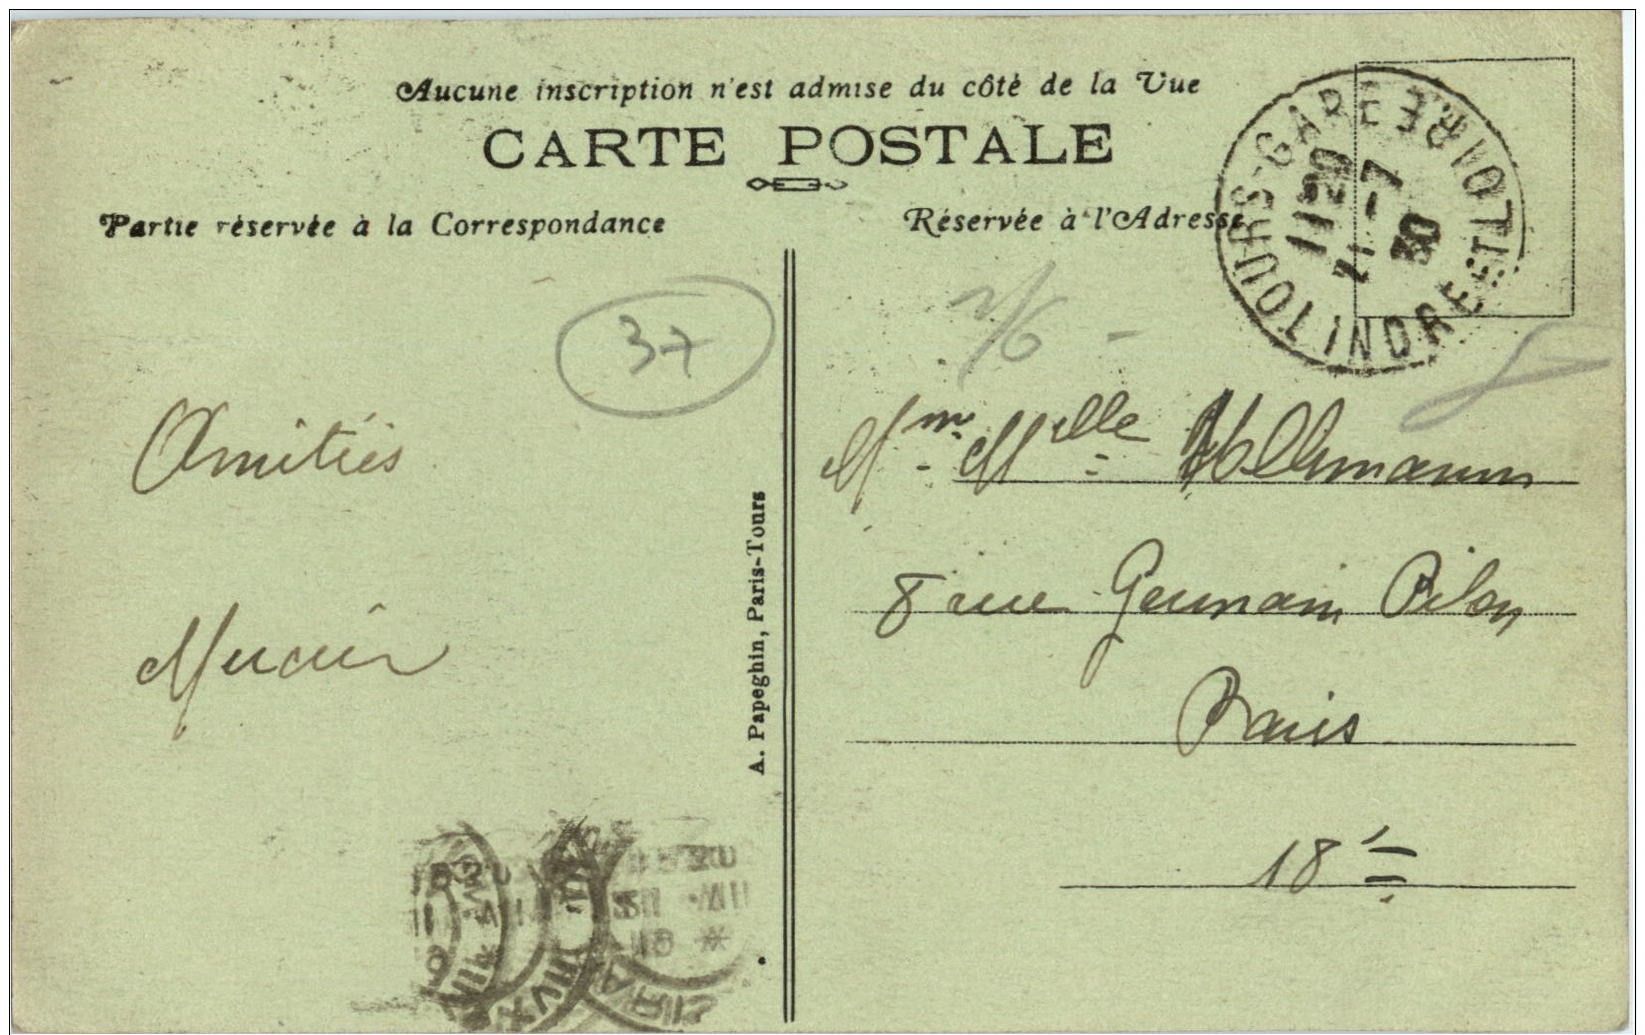 Aucune inscription n'est admise du côté de la Vue
CARTE POSTALE
Partie réservée à la Correspondance
Réservée à l'Adresse
TOURS-GARE
INDRE ET LOIRE
11 20
-7
30
37
Amitiés
A. Papeghin, Paris-Tours
Mme Melle
8 rue Germain Pilon
Paris
18e